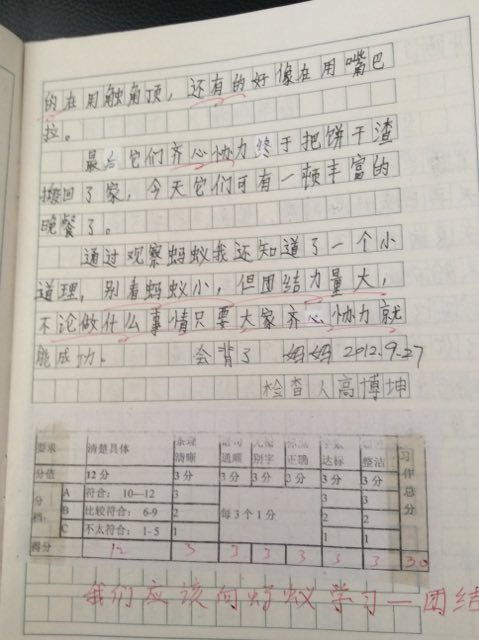 的在用触角顶，还有的好像在用嘴巴
拉。
最后它们齐心协力终于把饼干渣
搬回了家，今天它们可有一顿丰富的
晚餐了。
通过观察蚂蚁我还知道了一个小
道理，别看蚂蚁小，但团结力量大，
不论做什么事情只要大家齐心协力就
能成功。 会背了 妈妈 2012.9.27
检查人高博坤
要求 清楚具体 清晰 通顺 别字 正确 达标 整洁 习作总分
分值 12分 3分 3分 3分 3分 3分 3分
分档： A 符合： 10—12 3 每3个1分 3 3
B 比较符合： 6-9 2 2 2
C 不太符合： 1-5 1 1 1
得分 12 3 3 3 3 3 3 30
我们应该向蚂蚁学习—团结